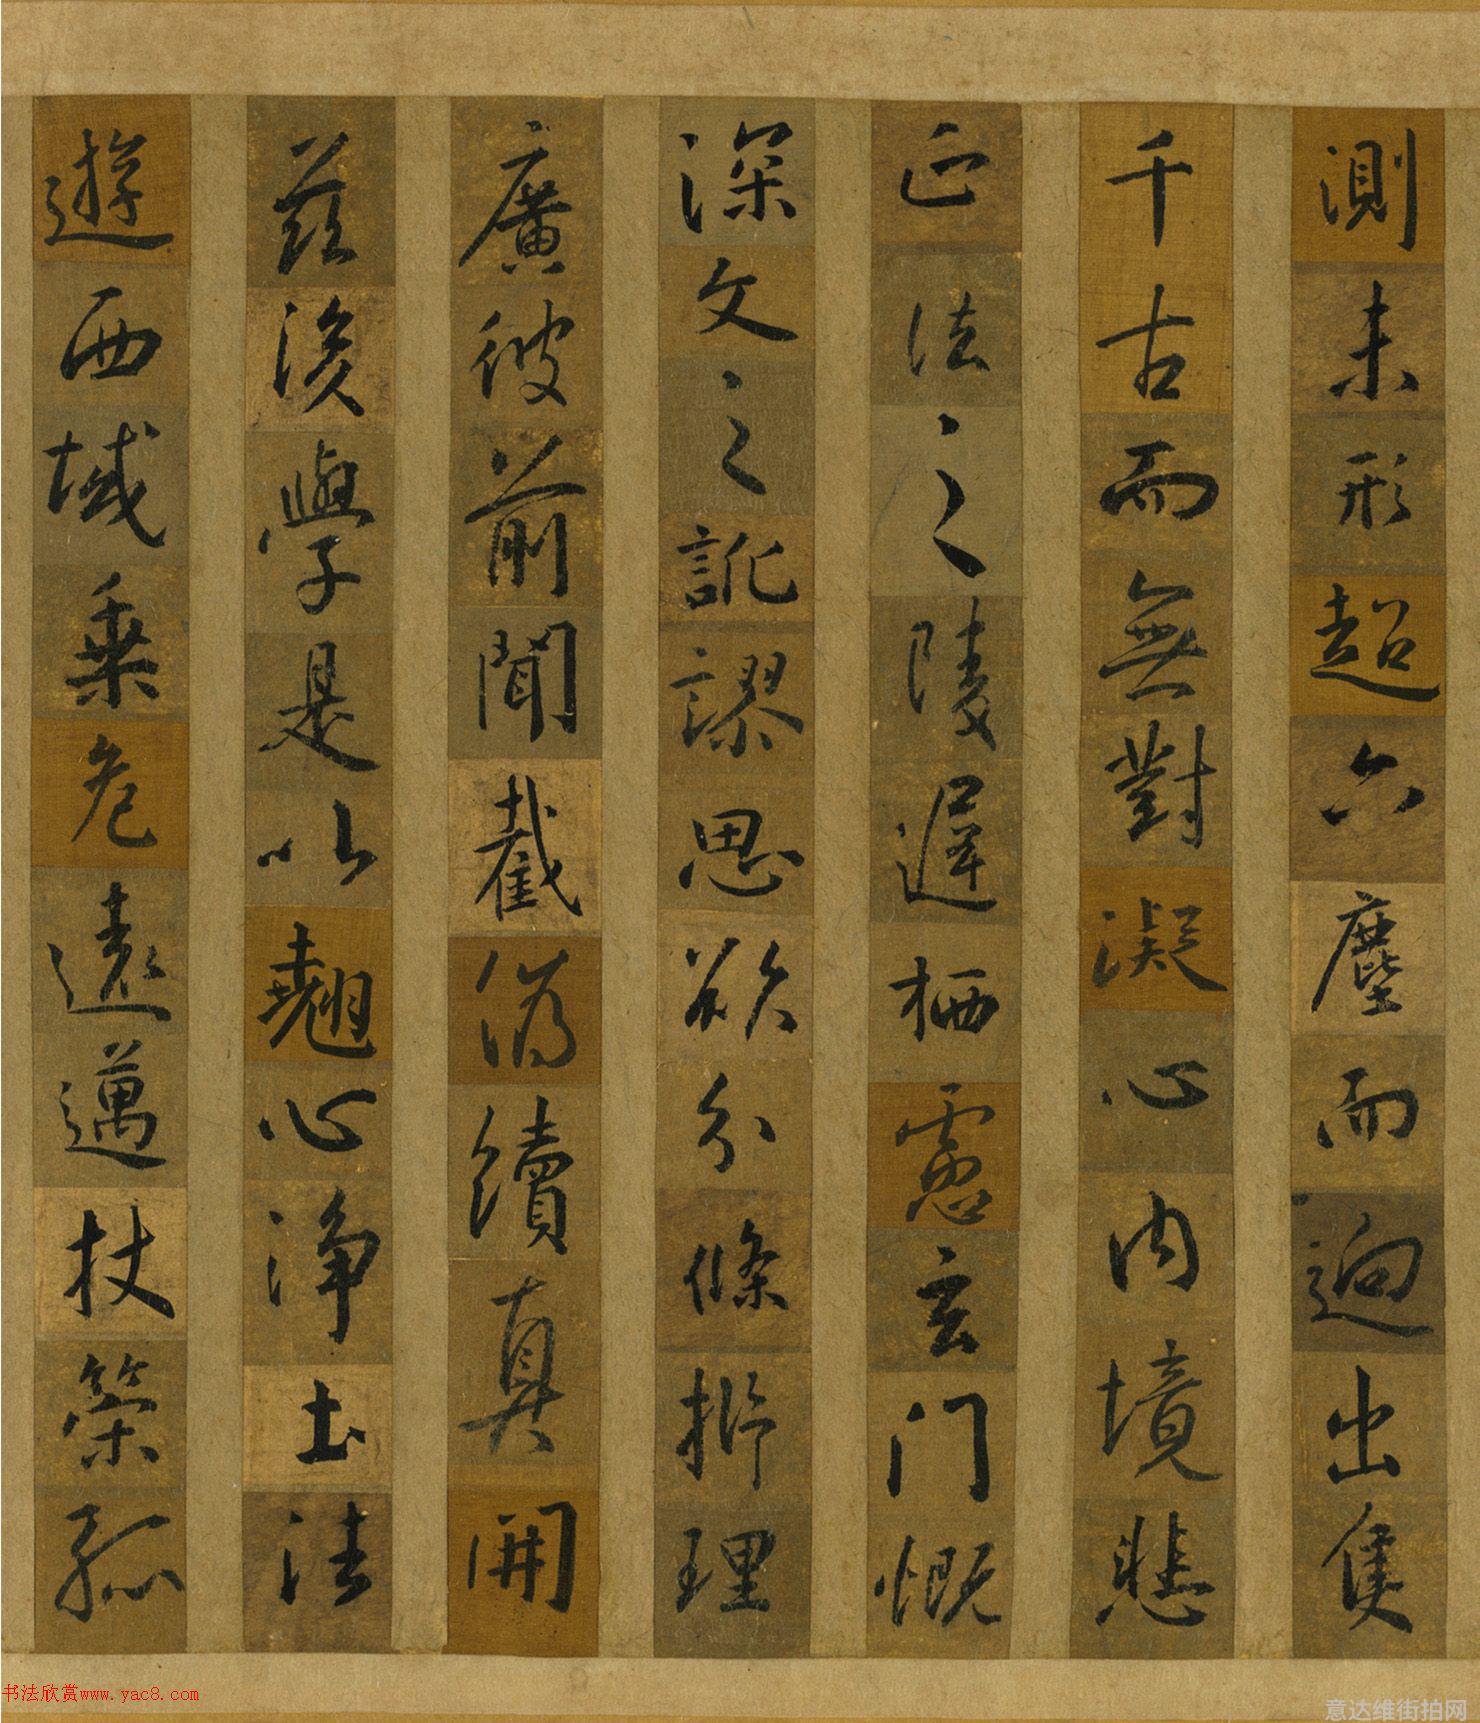 測未形超六塵而迥出隻
千古而無對凝心內境悲
正法之陵遲栖慮玄門慨
深文之訛謬思欲分條析理
廣彼前聞截偽續真開
茲後學是以翹心淨土法
遊西域乘危遠邁杖策孤
书法欣赏www.yac8.com
意达维街拍网